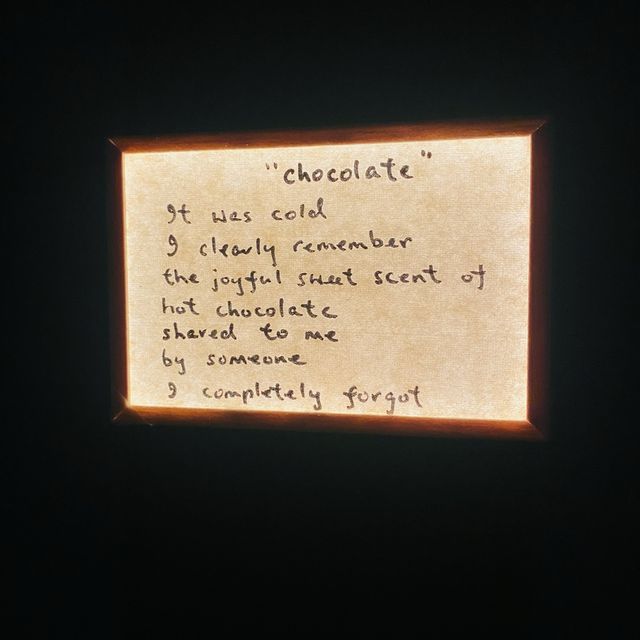 "chocolate"
It was cold
I clearly remember
the joyful sweet scent of
hot chocolate
shared to me
by someone
I completely forgot